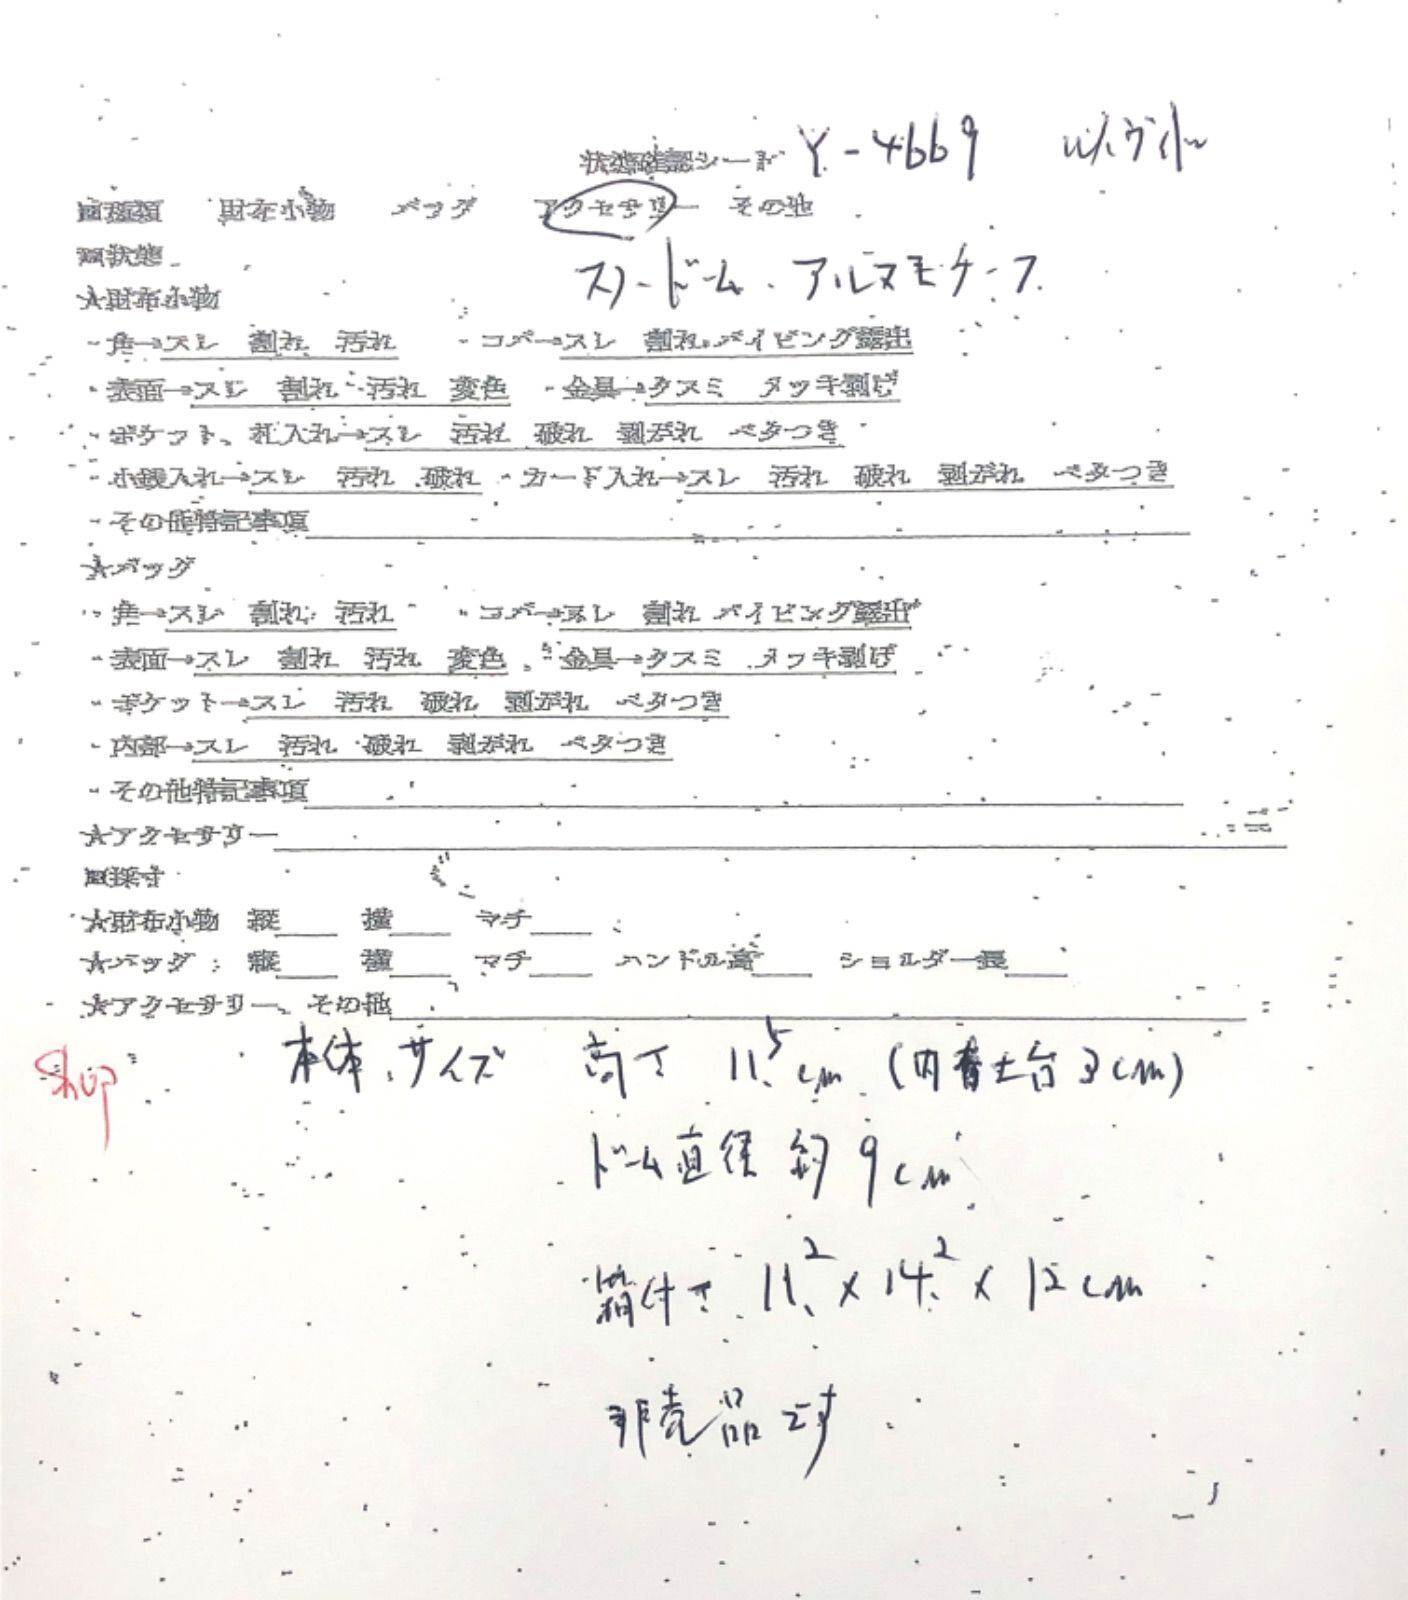 状態確認シート Y-4669 ルイヴィトン
■種類 財布小物 バッグ アクセサリー その他
■状態 スノードーム、アルマモチーフ
★財布小物
・角→スレ 割れ 汚れ ・コバ→スレ 割れ パイピング露出
・表面→スレ 割れ 汚れ 変色 ・金具→クスミ メッキ剥げ
・ポケット、札入れ→スレ 汚れ 破れ 剥がれ ベタつき
・小銭入れ→スレ 汚れ 破れ ・カード入れ→スレ 汚れ 破れ 剥がれ ベタつき
・その他特記事項
★バッグ
・角→スレ 割れ 汚れ ・コバ→スレ 割れ パイピング露出
・表面→スレ 割れ 汚れ 変色 ・金具→クスミ メッキ剥げ
・ポケット→スレ 汚れ 破れ 剥がれ ベタつき
・内部→スレ 汚れ 破れ 剥がれ ベタつき
・その他特記事項
★アクセサリー
■採寸
★財布小物 縦 横 マチ
★バッグ 縦 横 マチ ハンドル高 ショルダー長
★アクセサリー、その他
shop 本体サイズ 高さ 11.5cm (内 土台3cm)
ドーム直径 約9cm
箱付き 11.2×14.2×12cm
非売品です